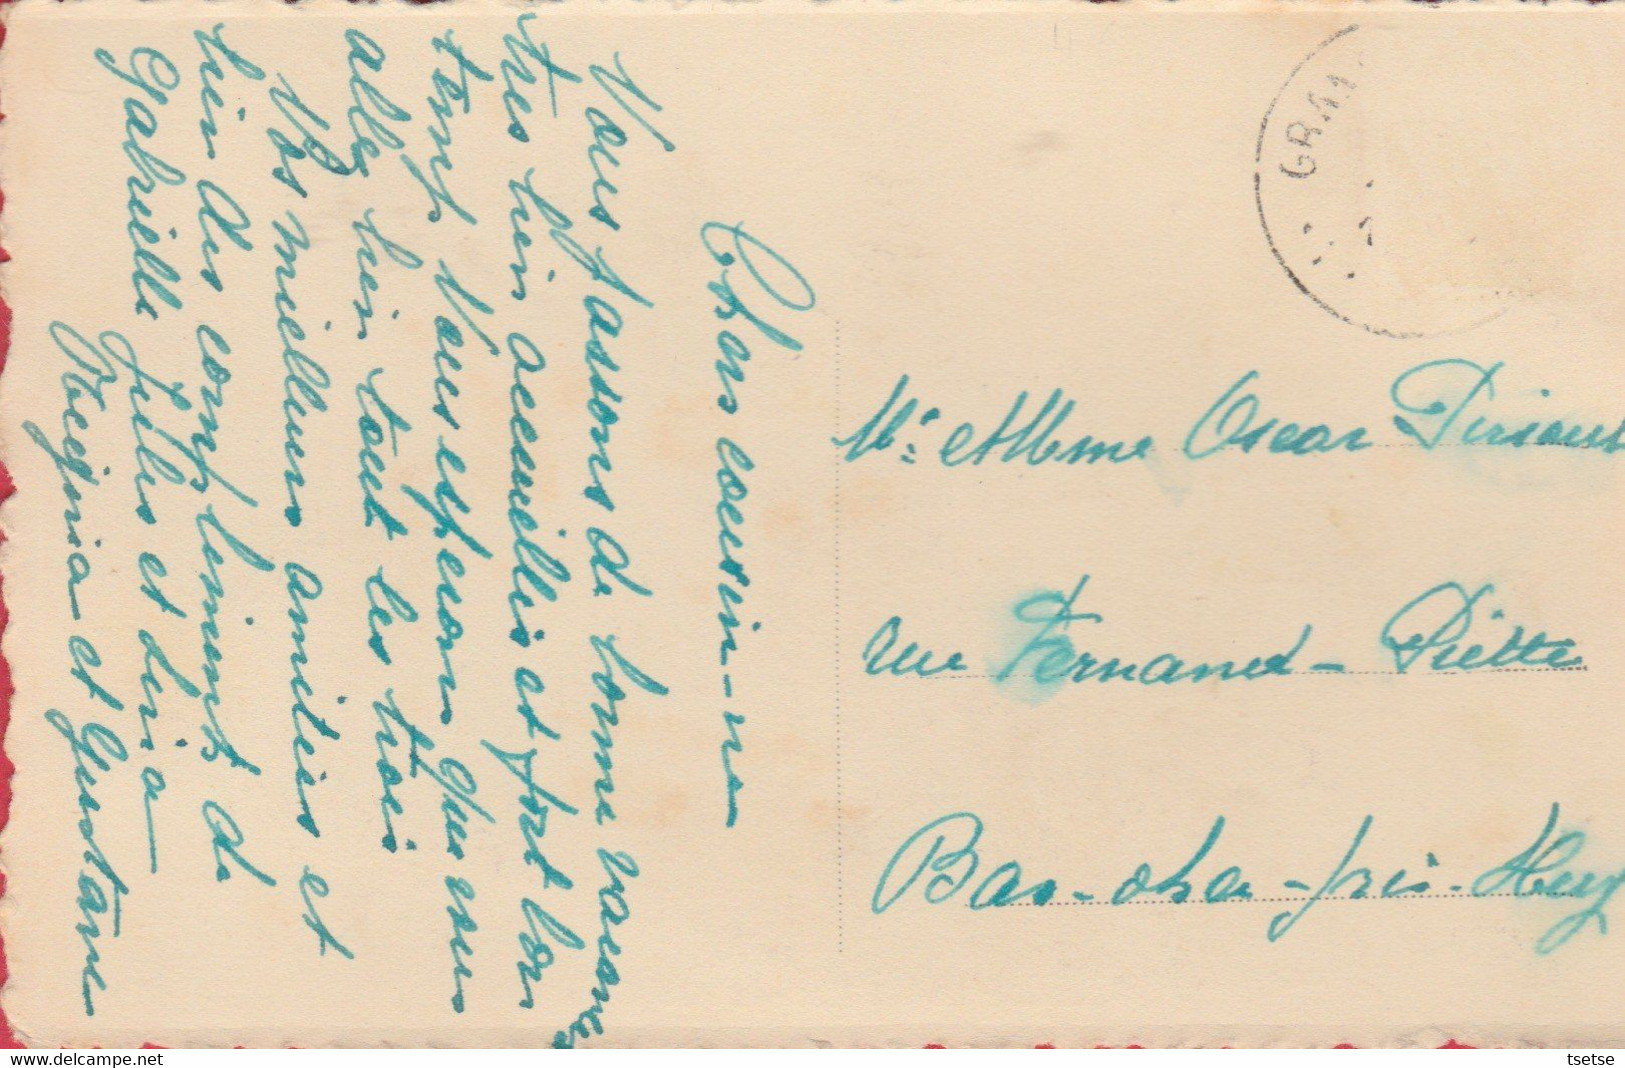 Chers cousin-ne
Vous passons de bonne vacances
tres bien accueillis et fort bon
temp Vous esperons que vous
allez bien tout les trois
Vos meilleurs amities et
bien des compliments de
Gabrielle Jules et Lina
Regina et Gustave
GRA
Mr: et Mme Oscar
rue Fernand-Piette
Bas-oha-près-Huy
www.delcampe.net
tsetse